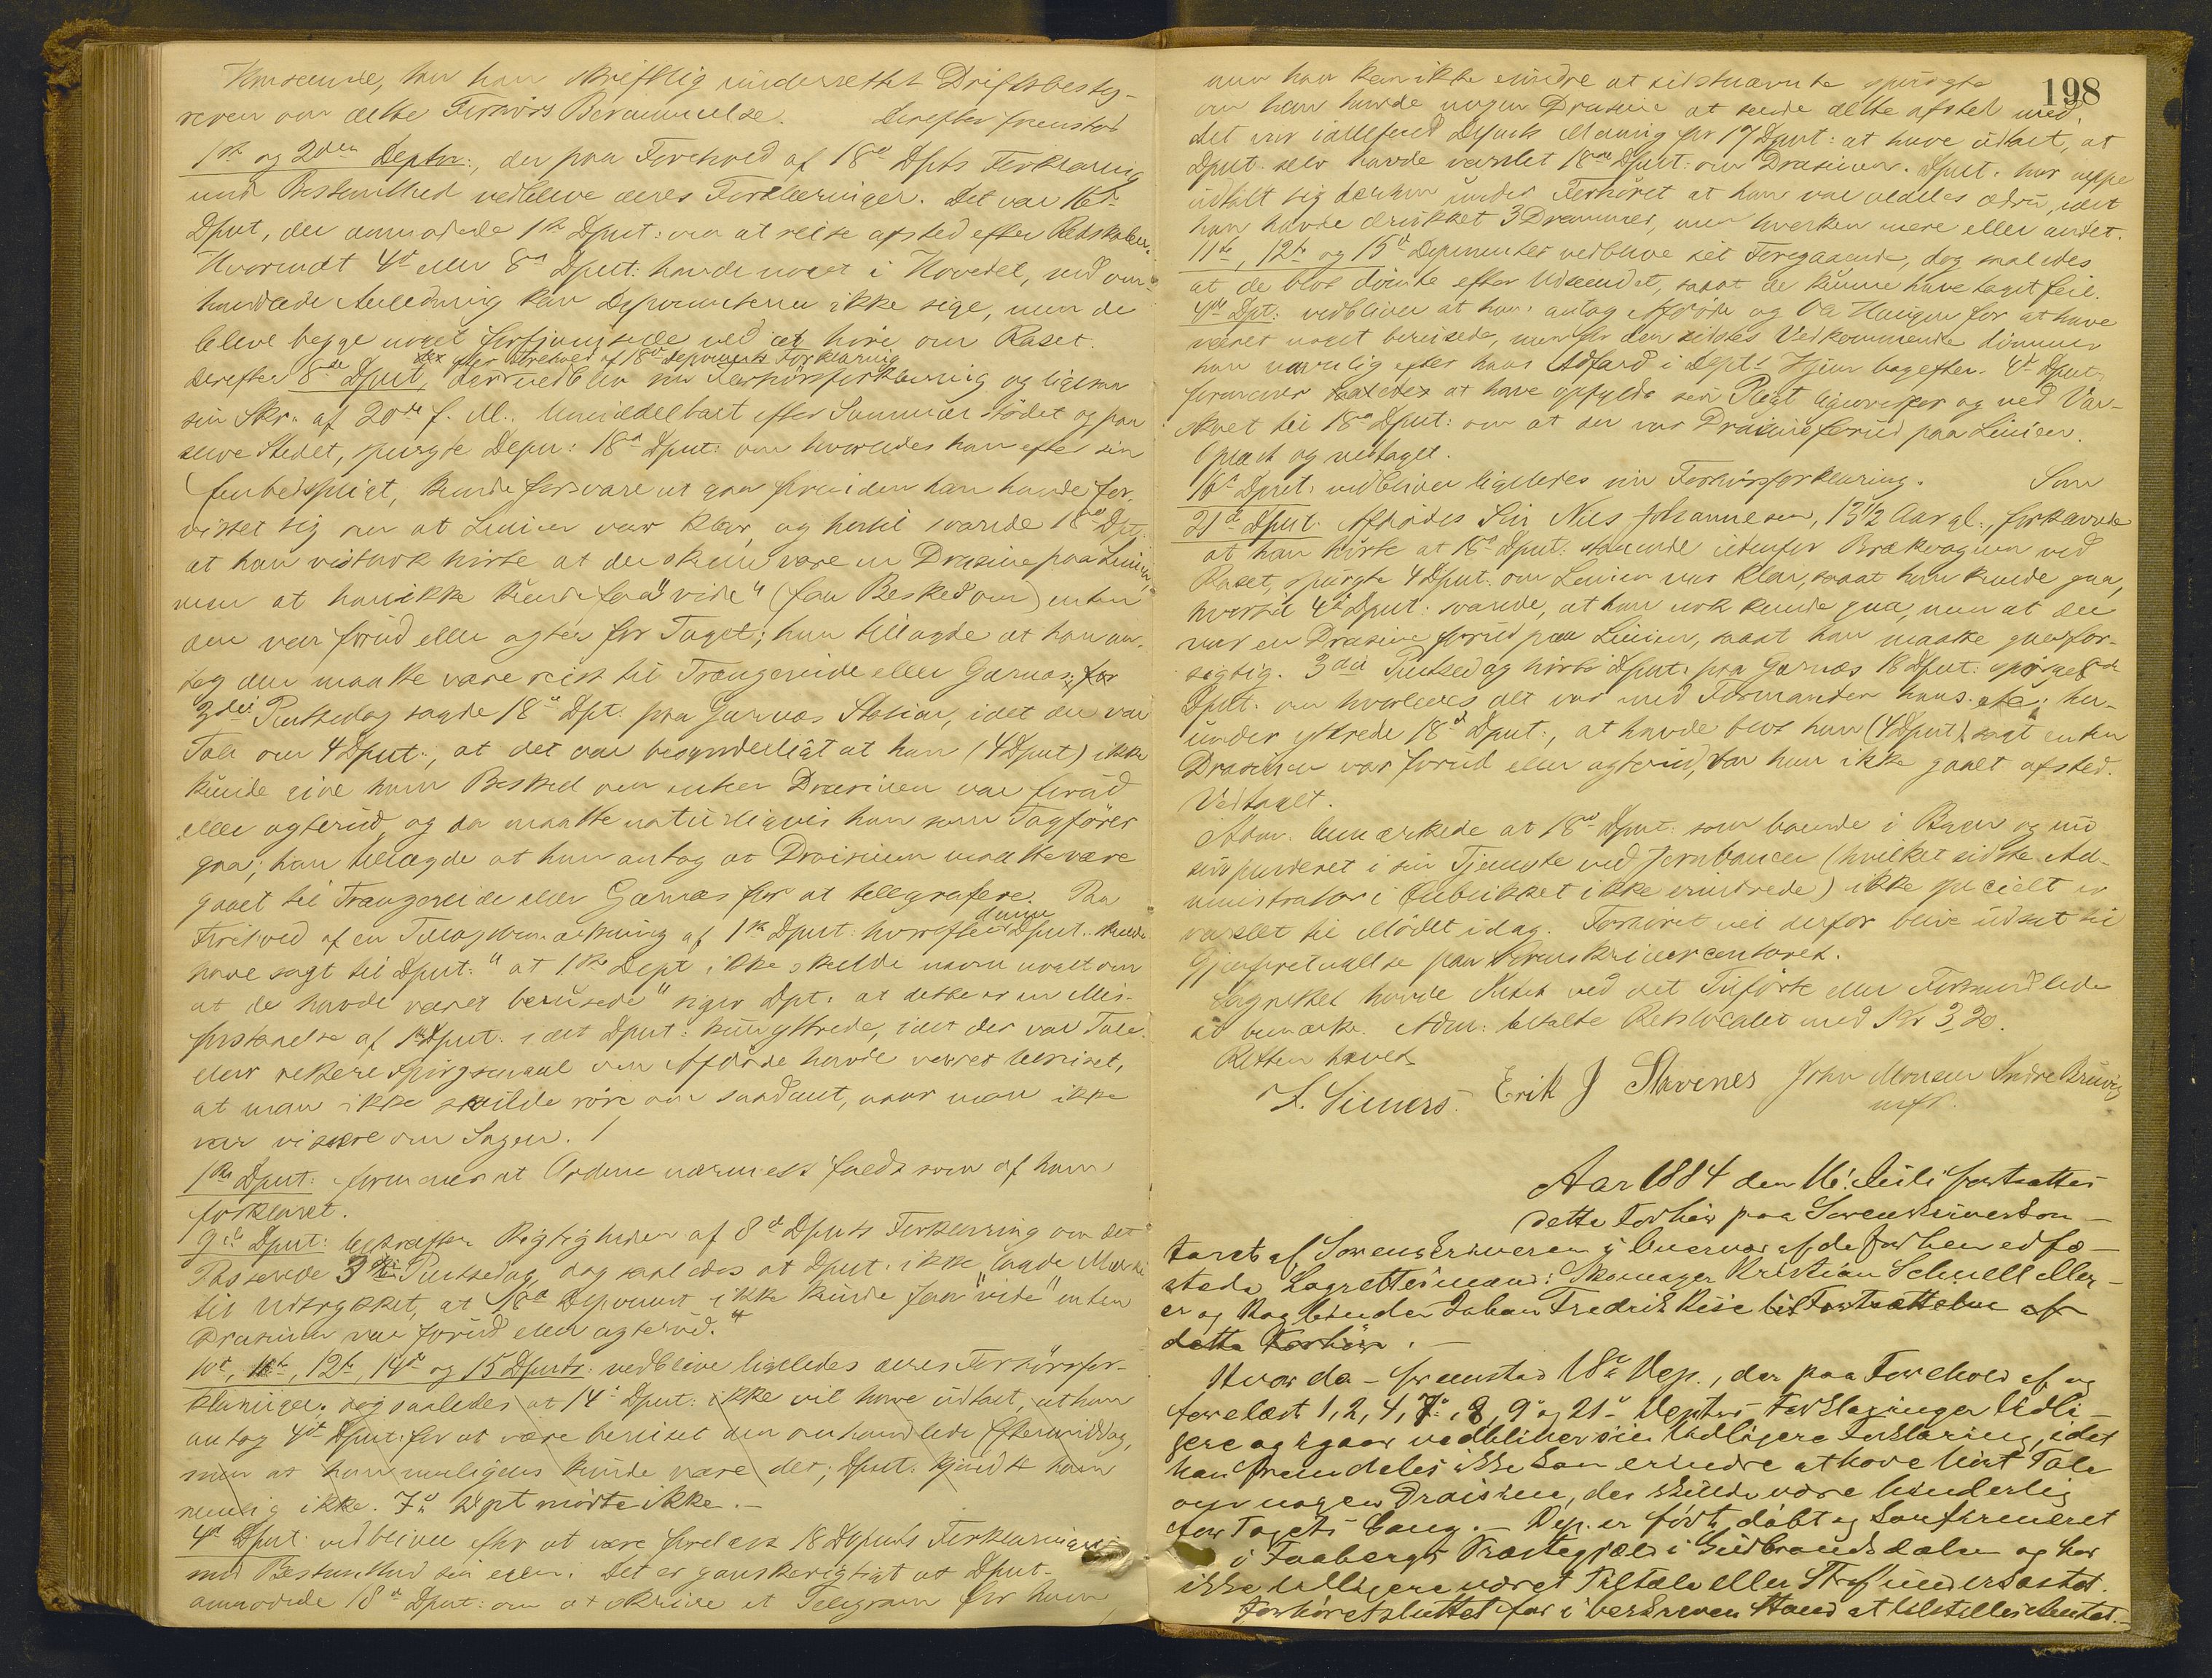 har han skriftlig underrettet Driftsbesty-
reren om dette Forhörs Berammelse. Derefter fremstod
1ste og 2den Deptr:, der paa Forehold af 18d Dpts Forklaring
med Bestemthed vedbleve deres Forklaringer. Det var 16de
Dput, der anmodede 1ste Dput: om at reise afsted efter Redskaber.
Hvorvidt 4d eller 8d Dput: havde noget i Hovedet, ved om-
handlede Anledning kan Deponenterne ikke sige, men de
bleve begge noget forfjamsede ved at höre om Raset.
der efter Forehold af 18d Deponents Forklaring
Derefter 8de Dput, vedblev sin Forhörsforklaring og ligesaa
sin Skr. af 20de f. M. Umiddelbart efter Sammenstödet og paa
selve Stedet, spurgte Depn: 18d Dput: om hvorledes han efter sin
Embedspligt, kunde forsvare at gaa förinden han havde for-
visset sig om at Linien var klar, og hertil svarede 18d Dpt,
at han vistnok hörte at der skulde være en Dræsine paa Linien,
men at han ikke kunde faa "vide" (faa Besked om) enten
den var forud eller agter for Toget; han tillagde at han an-
tog den maatte være reist til Trængereide eller Garnæs. for
3die Pintsedag sagde 18d Dpt. paa Garnæs Station, idet der var
Tale om 4 Dput:, at det var besynderligt at han (4 Dput) ikke
kunde give ham Besked om enten Dræsinen var forud
eller agterud, og da maatte naturligvis han som Togförer
gaa; han tillagde at han antog at Draisinen maatte være
gaaet til Trængereide eller Garnæs for at telegrafere. Paa
Forehold af en af 1ste Dput: hvorefter denne Dput. skulde
have sagt til Dput: "at 1ste Dept ikke skulde nævne noget om
at de havde været berusede" siger Dpt. at dette er en Mis-
forstaaelse af 1ste Dput: idet Dput: kun yttrede, idet der var Tale
eller rettere Spörgsmaal om Afdöde havde været beruset,
at man ikke skulde röre om saadant, naar man ikke
var vissere om Sagen. /
1ste Dput: formener at Ordene nærmest faldt som af ham
forklaret.
9de Dput: bekræfter Rigtigheden af 8d Dputs Forklaring om det
Passerede 3die Pintsedag, dog saaledes at Dput. ikke lagde Mærke
til Udtrykket, at 18d Deponent ikke kunde faa "vide" enten
Dræsinen var forud eller agterud."
10d, 11te, 12te, 14de og 15 Dputs: vedbleve ligeledes deres Forhörsfor-
klaringer, dog saaledes at 14d Dput: ikke vil have udtalt, at han
antog 4d Dput: for at være beruset den omhandlede Eftermiddag,
men at han muligens kunde være det; Dput. kjendte ham
nemlig ikke. 7d Dpt mödte ikke. –
4d Dput: vedbliver efter at være forelæst 18 Dputs Forklaring
med Bestemthed sin egen. Det er ganske rigtigt at Dput.
anmodede 18d Dput: om at skrive et Telegram for ham,
men han kan ikke erindre at sidstnævnte spurgte
198
om han havde nogen Dræsine at sende dette afsted med.
Det var iallefald Dputs Mening for 17 Dput: at have udtalt, at
Dput. selv havde varslet 18de Dput: om Dræsinen. Dput. har neppe
udtalt sig derhen under Forhöret at han var aldeles ædru, idet
han havde drukket 3 Drammer, men hverken mere eller andet.
11te, 12te og 15d Deponenter vedbleve sit Foregaaende, dog saaledes
at de blot dömte efter Udseendet, saaat de kunne have taget feil.
4de Dpt: vedbliver at han antog Afdöde og Ola Haugen for at have
været noget berusede, men for den sidstes Vedkommende dömmer
han navnlig efter hans Adfærd i Dept.s Hjem bagefter. 4d Dput.
formener saaledes at have opfyldt sin Pligt og ved Var-
skuet til 18d Dput: om at der var Dræsine forud paa Linien.
Oplæst og vedtaget.
16d Dput. vedbliver ligeledes sin Forhörsforklaring. Som
21d Dput. Afdödes Sön Nils Johannesen, 13 1/2 Aar gl., forklarede
at han hörte at 18d Dput: staaende udenfor Brækvognen ved
Raset, spurgte 4 Dput. om Linien var klar, saaat han kunde gaa,
hvortil 4d Dput: svarede, at han nok kunde gaa, men at der
var en Dræsine forud paa Linien, saaat han maatte gaa for-
sigtig. 3die Pintsedag hörte Dput. paa Garnæs 18 Dput: spörge 8de
Dput. om hvorledes alt var med Formanden hans. etc; her-
under yttrede 18d Dput:, at havde blot han (4 Dput) sagt enten
Dræsinen var forud eller agterud, var han ikke gaaet afsted.
Vedtaget.
Adm. bemærkede at 18d Dput. som boende i Byen og nu
suspenderet i sin Tjeneste ved Jernbanen (hvilket sidste Ad-
ministrator i Öieblikket ikke erindrede) ikke specielt er
varslet til Mödet idag. Forhöret vil derfor blive udsat til
Gjenforetagelse paa Sorenskrivercontoret.
Lagrettet havde Intet ved det Tilförte eller Forhandlede
at bemærke. Adm: betalte Retslocalet med Kr 3,20.
Retten hævet.
Erik J Stavenes John Monsen Sndre Bruvig
mfP.
Aar 1884 den 16. Juli fortsattes
dette Forhör paa Sorenskriverkon-
toret af Sorenskriveren i Overvær af de for hen edfæ-
stede Lagrettesmænd: Skomager Kristian Schnell Mey-
er og Bogbinder Johan Fredrik Reise til Fortsættelse af
dette Forhör. –
Hvor da – fremstod 18de Dep., der paa Forehold af og
forelæst 1, 2, 4, 7d, 8, 9d og 21d Deptrs Forklaringer tidli-
gere og igaar vedbliver sin tidligere Forklaring, idet
han fremdeles ikke kan erindre at have hört Tale
om nogen Draisine, der skulde være hinderlig
for Togets Gang. – Dep. er födt, döbt og konfirmeret
i Faabergs Præstegjæld i Gudbrandsdalen og har
ikke tidligere været Tiltale eller Straf undersattet.
Forhöret sluttet for i beskreven Stand at tilstilles Amtet. –